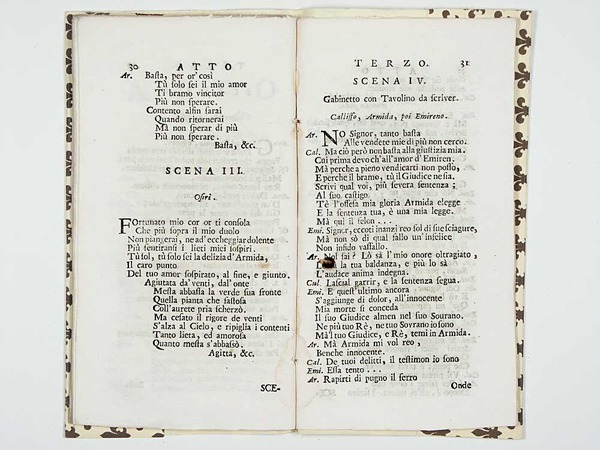 30 ATTO
Ar. Basta, per or' così
Tù solo sei il mio amor
Ti bramo vincitor
Più non sperare.
Contento alfin sarai
Quando ritornerai
Mà non sperar di più
Più non sperare.
Basta, &c.
SCENA III.
Osiri.
FOrtunato mio cor or ti consola
Che più sopra il mio duolo
Non piangerai, ne ad'eccheggiar dolente
Più sentiransi i lieti mici sospiri.
Tù sol, tù solo sei la delizia d'Armida,
Il caro punto
Del tuo amor sospirato, al fine, e giunto.
Agiutata da' venti, dal'onte
Mesta abbassa la verde sua fronte
Quella pianta che fastosa
Coll'aurete pria scherzò.
Ma cesato il rigore de venti
S'alza al Cielo, e ripiglia i contenti
Tanto lieta, ed amorosa
Quanto mesta s'abbasò.
Agitta, &c.
SCE-
TERZO. 31
SCENA IV.
Gabinetto con Tavolino da scriver.
Callisso, Armida, poi Emireno.
Ar. NO Signor, tanto basta
Alle vendete mie di più non cerco.
Cal. Ma ciò però non basta alla giustizia mia.
Coi prima devo ch'all'amor d'Emiren.
Mà perche a pieno vendicarti non posso,
E perche il bramo, tù il Giudice ne sia.
Scrivi qual voi, più severa sentenza;
Al suo castigo.
Te l'offesa mia gloria Armida elegge
E la sentenza tua, è una mia legge.
Mà quì il felon ...
Emi. Signor, eccoti inanzi reo sol di sue sciagure,
Mà non sò di qual fallo un'infelice
Non infido vassallo.
Ar. Nol sai? Lò sà l'mio onore oltragiato,
la tua baldanza, e più lò sà
L'audace anima indegna.
Cal. Lascial garrir, e la sentenza segua.
Emi. E quest'ultimo ancora
S'aggiunge di dolor, all'innocente
Mia morte si conceda
Il suo Giudice almen nel suo Sovrano.
Ne più tuo Rè, ne tuo Sovrano io sono
Mà'l tuo Giudice, e Rè, temi in Armida.
Ar. Mà Armida mi vol reo,
Benche innocente.
Cal. De tuoi delitti, il testimon io sono
Emi. Essa tento ...
Ar. Rapirti di pugno il ferro
Onde